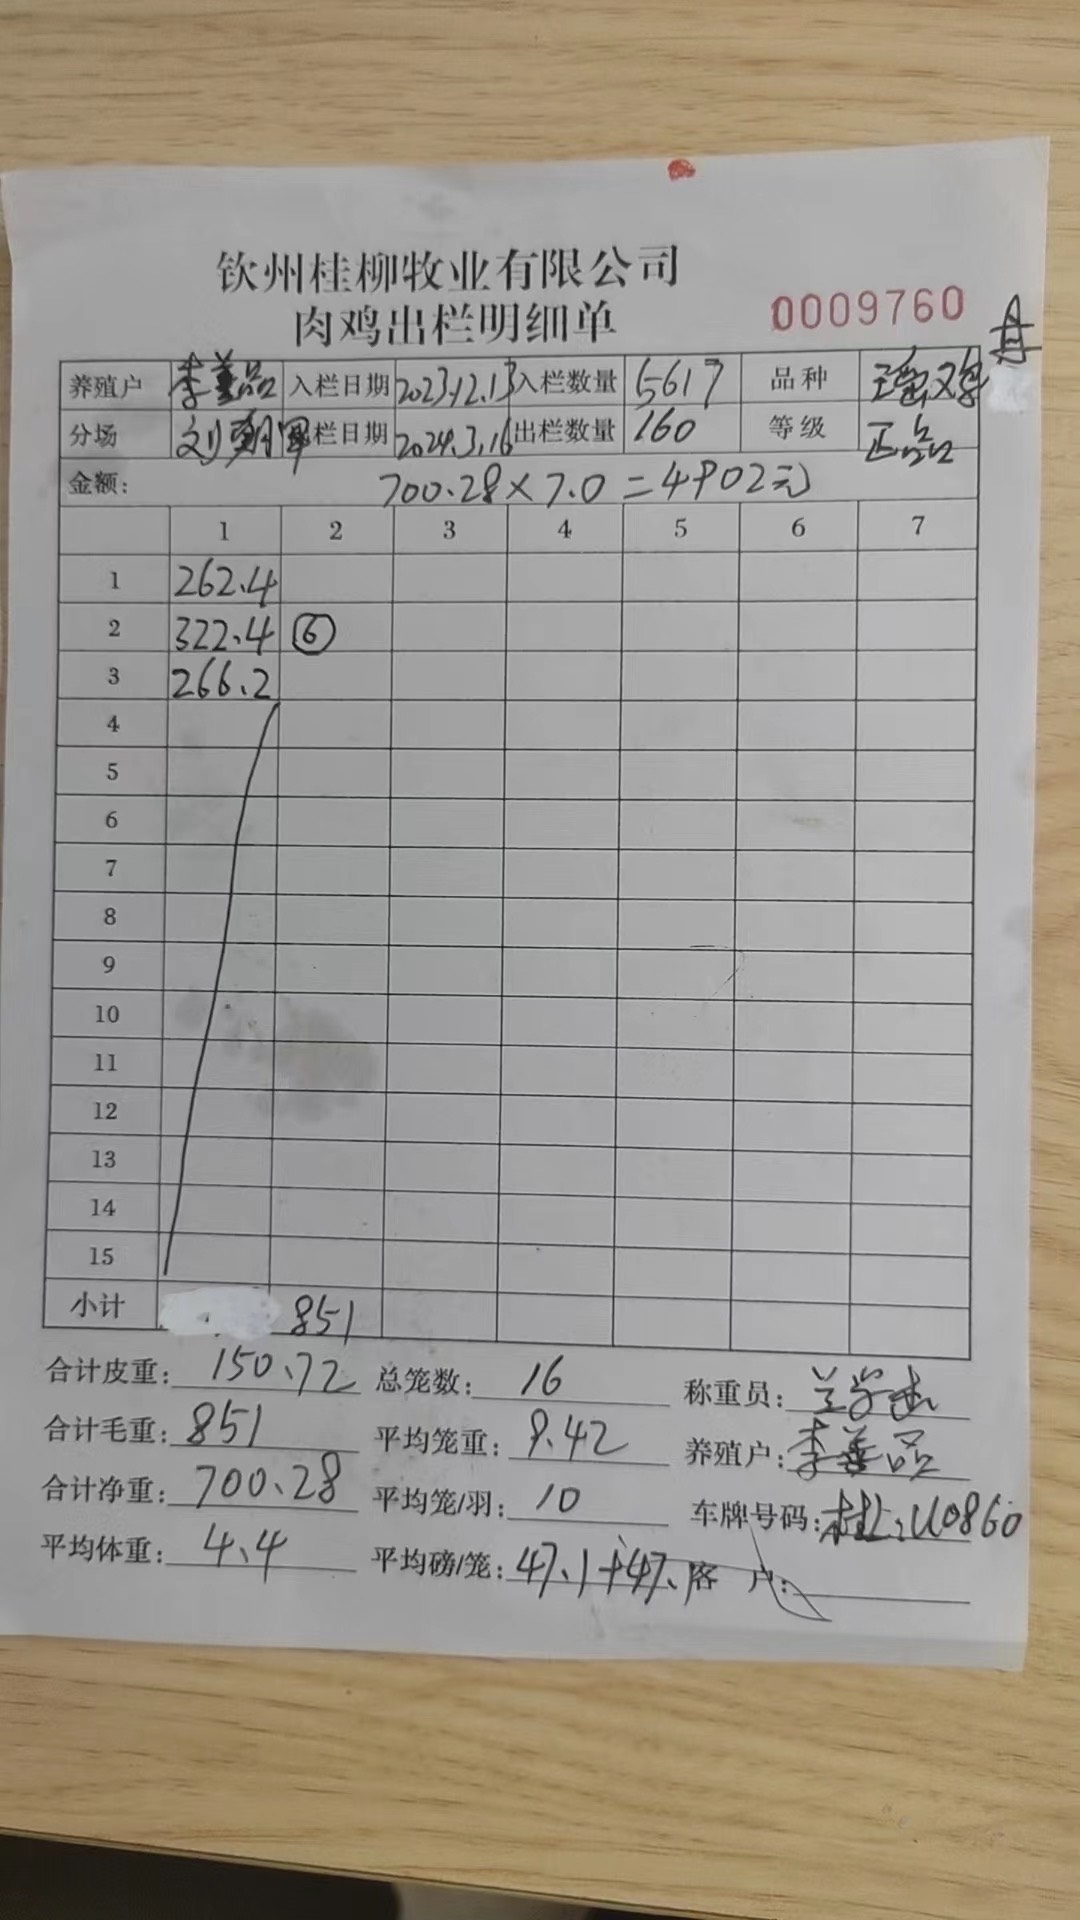 钦州桂柳牧业有限公司
肉鸡出栏明细单
0009760
养殖户 李善品 入栏日期 2023.12.13 入栏数量 5617 品种
分场 刘 栏日期 2024.3.16 出栏数量 160 等级 正品
金额: 700.28×7.0=4902元
1 2 3 4 5 6 7
1 262.4
2 322.4 ⑥
3 266.2
4
5
6
7
8
9
10
11
12
13
14
15
小计 851
合计皮重: 150.72 总笼数: 16 称重员: 兰
合计毛重: 851 平均笼重: 9.42 养殖户: 李善品
合计净重: 700.28 平均笼/羽: 10 车牌号码: 桂 U0860
平均体重: 4.4 平均磅/笼: 47.1+47.1 客 户: